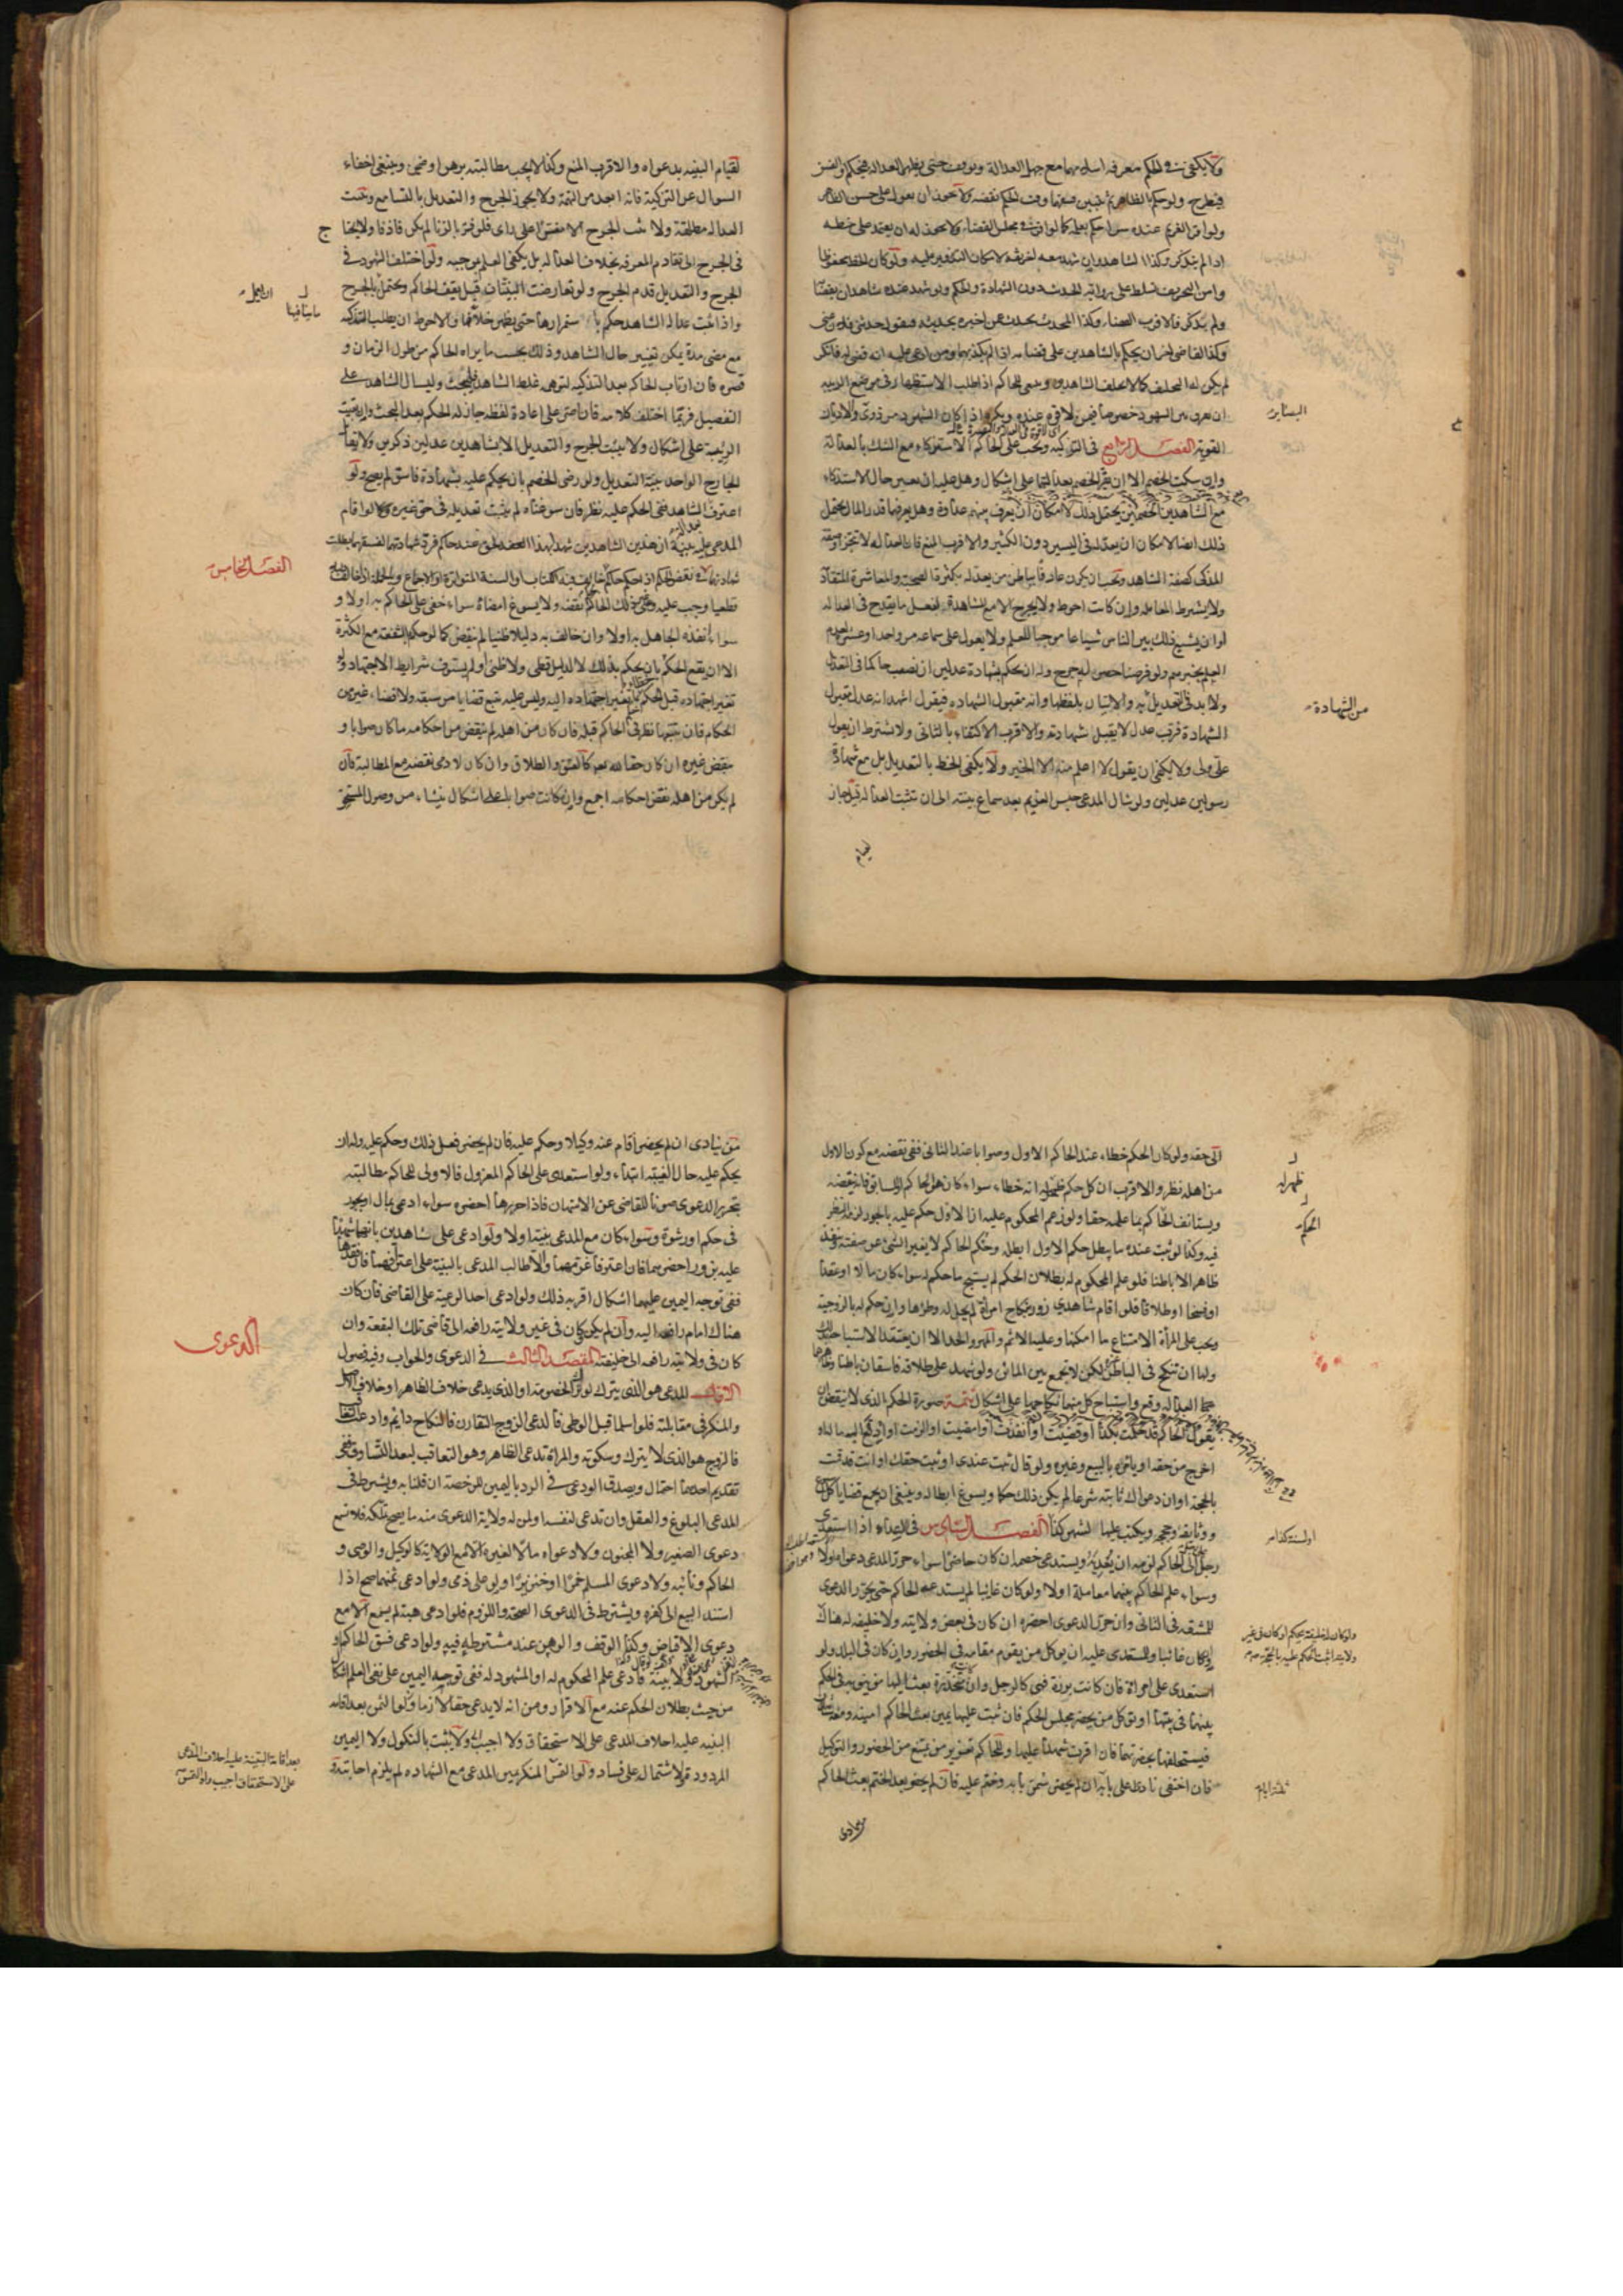 ولا يكفي في الحكم معرفة اسلامهما مع جهل العدالة وتوقف حتى يظهر العدالة فيحكم او الفسق
فيطرح ولو حكم بالظاهر ثم تبين فسقهما وقت الحكم نقضه ولا يجوز ان يعول على حسن الظاهر
ولو اقر الغريم عنده سرا حكم بعلمه كما لو اقر في مجلس القضاء ولا يجوز له ان يعتمد على خطه
اذا لم يتذكر وكذا الشاهد وان شهد معه غيره ثقة لامكان التزوير عليه ولو كان الخط محفوظا
وامن التحريف تسلط على رواية الحديث دون الشهادة والحكم ولو شهد عنده شاهدان بقضائه
ولم يتذكر فالاقرب القضاء وكذا المحدث يحدث عمن اخبره بحديثه فيقول حدثني فلان عني
وكذا القاضي لغيره ان يحكم بالشاهدين على قضائه اذا لم يكذبهما ومن ادعى عليه انه قضى له فانكر
لم يكن له التحليف كما لا يحلف الشاهد وينبغي للحاكم اذا طلب الاستظهار في موضع الريبة
ان يفرق بين الشهود خصوصا فيمن لا قوة عنده ويكره اذا كان الشهود من ذوي الاديان
البصائر
القوية الفصل الرابع في التزكية ويجب على الحاكم الاستزكاء مع الشك بالعدالة
وان سكت الخصم الا ان يقر الخصم بعدالتهما على اشكال وهل عليه ان يعين حال الاستزكاء
مع الشاهدين الخصمين يحتمل ذلك لامكان ان يعرف بينهم عداوة وهل يعرفهما قدر المال يحتمل
ذلك ايضا لامكان ان يعدله في اليسير دون الكثير والاقرب المنع فان العدالة لا تتجزأ وصفة
المزكي كصفة الشاهد ويجب ان يكون عارفا بباطن من يعدله بكثرة الصحبة والمعاشرة المتقادمة
ولا يشترط المعاملة وان كانت احوط ولا يجرح الا مع المشاهدة لفعل ما يقدح في العدالة
او ان يشيع ذلك بين الناس شياعا موجبا للعلم ولا يعول على سماعه من واحد او عشرة لعدم
العلم بخبرهم ولو فرضنا حصوله جرح وله ان يحكم بشهادة عدلين ان نصب حاكما في التعديل
ولا بد في التعديل من الاتيان بلفظها وانه مقبول الشهادة فيقول اشهد انه عدل مقبول
من الشهادة
الشهادة فرب عدل لا يقبل شهادته والاقرب الاكتفاء بالثاني ولا يشترط ان يقول
علي ولي ولا يكفي ان يقول لا اعلم منه الا الخير ولا يكفي الخط بالتعديل بل مع شهادة
رسولين عدلين ولو سال المدعي حبس الغريم بعد سماع بينته الى ان تثبت العدالة قيل جاز
لقيام
لقيام البينة بدعواه والاقرب المنع وكذا لا يجب مطالبته برهن او ضمين وينبغي اخفاء
السؤال عن التزكية فانه ابعد من التهمة ولا يجوز الجرح والتعديل بالتسامع وتثبت
العدالة مطلقة ولا يثبت الجرح الا مفسرا على راي فلو فسر بالزنا لم يكن قاذفا ولا يحتاج
في الجرح الى تقادم المعرفة بخلاف العدالة بل يكفي العلم بموجبه ولو اختلف الشهود في
الجرح والتعديل قدم الجرح ولو تعارضت البينتان قيل يقف الحاكم ويحتمل بالجرح
واذا ثبت عدالة الشاهد حكم باستمرارها حتى يظهر خلافها والاحوط ان يطلب التزكية
مع مضي مدة يمكن تغيير حال الشاهد وذلك بحسب ما يراه الحاكم من طول الزمان و
قصره فان ارتاب الحاكم بعد التزكية لتوهمه غلط الشاهد فليبحث وليسال الشاهد على
التفصيل فربما اختلف كلامه فان اصر على اعادة لفظه جاز له الحكم بعد البحث وان بقيت
الريبة على اشكال ولا يثبت الجرح والتعديل الا بشاهدين عدلين ذكرين ولا يقابل
الجارح الواحد بينة التعديل ولو رضي الخصم بان يحكم عليه بشهادة فاسق لم يصح ولو
اعترف الشاهد ففي الحكم عليه نظر فان سوغناه لم يثبت تعديله في حق غيره وكذا لو اقام
المدعى عليه بينة ان هذين الشاهدين شهدا بهذا الحق عند حاكم فرد شهادتهما لفسقهما بطلت
شهادتهما
الفصل الخامس
في نقض الحكم اذا حكم حاكم خالف فيه الكتاب او السنة المتواترة او الاجماع وبالجملة اذا خالف دليلا
قطعيا وجب عليه وعلى غير ذلك الحاكم نقضه ولا يسوغ امضاؤه سواء خفي على الحاكم به اولا و
سواء انفذه الجاهل به اولا وان خالف به دليلا ظنيا لم ينقض كما لو حكم بالشفعة مع الكثرة
الا ان يقع الحكم بان يحكم بذلك لا لدليل قطعي ولا ظني او لم يستوف شرايط الاجتهاد ولو
تغير اجتهاده قبل الحكم بما تغير اجتهاده اليه وليس عليه تتبع قضايا من سبقه ولا قضاء غيره من
الحكام فان تتبعها نظر في الحاكم قبله فان كان من اهله لم ينقض من احكامه ما كان صوابا و
ينقض غيره ان كان حقا لله تعالى كالعتق والطلاق وان كان لادمي نقضه مع المطالبة فان
لم يكن من اهله نقض احكامه اجمع وان كانت صوابا على اشكال ينشأ من وصول المستحق
الى حقه ولو كان الحكم خطاء عند الحاكم الاول وصوابا عند الثاني ففي نقضه مع كون الاول
من اهله نظر والاقرب ان كل حكم ظهر له انه خطاء سواء كان هو الحاكم او السابق فانه ينقضه
ظهر له
ويستانف الحاكم بما علمه حقا ولو زعم المحكوم عليه ان الاول حكم عليه بالجور لزم النظر
الحكم
فيه وكذا لو ثبت عنده ما يبطل حكم الاول ابطله وحكم الحاكم لا يغير الشيء عن صفته وينفذ
ظاهرا لا باطنا فلو علم المحكوم له بطلان الحكم لم يستبح ما حكم له سواء كان مالا او عقدا
او فسخا او طلاقا فلو اقام شاهدي زور بنكاح امراة لم يحل له وطؤها وان حكم له بالزوجية
ويجب على المراة الامتناع ما امكنها وعليه الاثم والمهر والحد الا ان يعتقد الاستباحة بذلك
ولها ان تنكح في الباطن غيره لكن لا يجمع بين المائين ولو شهد على طلاقه فاسقان باطنا وظاهرهما
العدالة وقع واستباح كل منهما نكاحها على اشكال تتمة صورة الحكم الذي لا ينقض ان
يقول الحاكم قد حكمت بكذا او قضيت او انفذت او امضيت او الزمت او ادفع اليه ماله او
اخرج من حقه او يامره بالبيع وغيره ولو قال ثبت عندي او ثبت حقك او انت قد قمت
بالحجة او ان دعواك ثابتة شرعا لم يكن ذلك حكما ويسوغ ابطاله وينبغي ان يجمع قضايا كل اسبوع
ووثايقه وحججه ويكتب عليها لشهر كذا الفصل السادس في الاعداء اذا استعدى
او لسنة كذا
رجل الى الحاكم لزمه ان يعديه ويستدعي خصمه ان كان حاضرا سواء حرر المدعي دعواه اولا
وسواء علم الحاكم بينهما معاملة اولا ولو كان غائبا لم يستدعه الحاكم حتى يحرر الدعوى
للمشقة في الثاني وان حرر الدعوى احضره ان كان في بعض ولايته ولا خليفة له هناك
ولو كان له خليفة يحكم او كان في غير
ولايته اثبت الحكم عليه بالحجة
وان كان غائبا وللمستعدى عليه ان يوكل من يقوم مقامه في الحضور وان كان في البلد ولو
استعدى على امراة فان كانت برزة فهي كالرجل وان كانت مخدرة بعث اليها من ينوبه في الحكم
بينهما في بيتها او توكل من يحضر مجلس الحكم فان ثبت عليها يمين بعث الحاكم امينه ومعه شاهدان
فيستحلفها بحضرتهما فان اقرت شهدا عليها وللحاكم تعزير من يمتنع من الحضور والتوكيل
فان اختفى نادى على بابه ان لم يحضر سمر بابه وختم عليه فان لم يحضر بعد الختم بعث الحاكم
ثلثة ايام
من ينادي
من ينادي ان لم يحضر اقام عنه وكيلا وحكم عليه فان لم يحضر فعل ذلك وحكم عليه وله ان
يحكم عليه حال الغيبة ابتداء ولو استعدى على الحاكم المعزول فالاولى للحاكم مطالبته
بتحرير الدعوى صونا للقاضي عن الامتهان فاذا حررها احضره سواء ادعى بمال او بجور
في حكم او رشوة وسواء كان مع المدعي بينة اولا ولو ادعى على شاهدين بانهما شهدا
عليه بزور احضرهما فان اعترفا غرمهما والا طالب المدعي بالبينة على اعترافهما فان فقدها
ففي توجه اليمين عليهما اشكال اقربه ذلك ولو ادعى احد الرعية على القاضي فان كان
هناك امام رافعه اليه وان لم يكن وكان في غير ولايته رافعه الى قاضي تلك البقعة وان
الدعوى
كان في ولايته رافعه الى خليفته المقصد الثالث في الدعوى والجواب وفيه فصول
الاول المدعي هو الذي يترك لو ترك الخصومة او الذي يدعي خلاف الظاهر او خلاف الاصل
والمنكر في مقابلته فلو اسلما قبل الوطي فادعى الزوج التقارن فالنكاح دايم وادعت التعاقب
فالزوج هو الذي لا يترك وسكوته والمراة تدعي الظاهر وهو التعاقب لبعد التساوق ففي
تقديم احدهما احتمال ويصدق الودعي في الرد باليمين للرخصة ان قلنا به ويشترط في
المدعي البلوغ والعقل وان تدعي لنفسه او لمن له ولاية الدعوى منه ما يصح تملكه فلا تسمع
دعوى الصغير ولا المجنون ولا دعواه مالا لغيره الا مع الولاية كالوكيل والوصي و
الحاكم ونائبه ولا دعوى المسلم خمرا او خنزيرا ولو على ذمي ولو ادعى ثمنهما صح اذا
استند البيع الى كفره ويشترط في الدعوى الصحة واللزوم فلو ادعى هبة لم يسمع الا مع
دعوى الاقباض وكذا الوقف والرهن عند مشترطه فيه ولو ادعى فسق الحاكم او
الشهود ولا بينة فادعى علم المحكوم له او المشهود له ففي توجه اليمين على نفي العلم اشكال
من حيث بطلان الحكم عنه مع الاقرار ومن انه لا يدعي حقا لازما ولو التمس بعد اقامة
البينة عليه احلاف المدعي على الاستحقاق ولا اجيب ولا يثبت بالنكول ولا اليمين
بعد اقامة البينة عليه احلاف المدعي
على الاستحقاق اجيب ولو التمس
المردودة لاشتماله على فساد ولو التمس المنكر يمين المدعي مع الشهادة لم يلزم اجابته